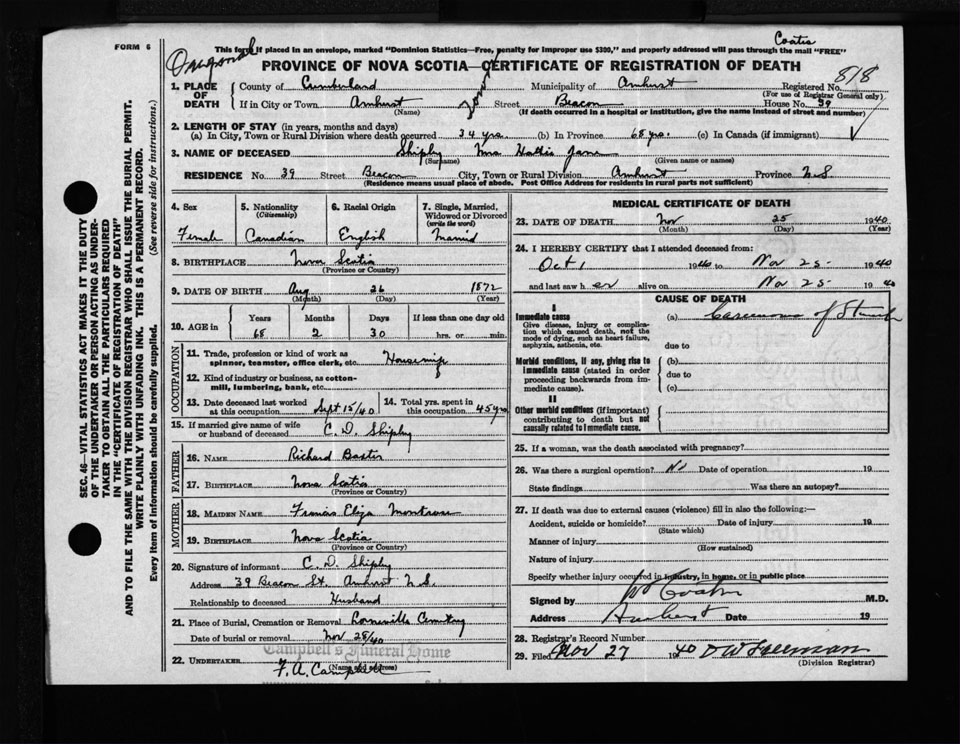 FORM 6
Coates
This form if placed in an envelope, marked "Dominion Statistics—Free, penalty for improper use $300," and properly addressed will pass through the mail "FREE"
PROVINCE OF NOVA SCOTIA—CERTIFICATE OF REGISTRATION OF DEATH
818
1. PLACE OF DEATH County of Cumberland Municipality of Amherst Registered No.
(For use of Registrar General only)
If in City or Town Amherst Street Beacon House No. 39
(Name) (If death occurred in a hospital or institution, give the name instead of street and number)
2. LENGTH OF STAY (in years, months and days)
(a) In City, Town or Rural Division where death occurred 34 yrs. (b) In Province 68 yrs. (c) In Canada (if immigrant)
3. NAME OF DECEASED Shipley Mrs Hattie Jane
(Surname) (Given name or names)
RESIDENCE No. 39 Street Beacon City, Town or Rural Division Amherst Province N.S
(Residence means usual place of abode. Post Office Address for residents in rural parts not sufficient)
4. Sex 5. Nationality (Citizenship) 6. Racial Origin 7. Single, Married, Widowed or Divorced (write the word)
Female Canadian English Married
8. BIRTHPLACE Nova Scotia
(Province or Country)
9. DATE OF BIRTH Aug 26 1872
(Month) (Day) (Year)
10. AGE in Years Months Days If less than one day old
68 2 30 hrs. or min.
OCCUPATION
11. Trade, profession or kind of work as spinner, teamster, office clerk, etc. Housewife
12. Kind of industry or business, as cotton-mill, lumbering, bank, etc.
13. Date deceased last worked at this occupation Sept 15/40 14. Total yrs. spent in this occupation 45 yrs
15. If married give name of wife or husband of deceased C. D. Shipley
FATHER
16. NAME Richard Baxter
17. BIRTHPLACE Nova Scotia
(Province or Country)
MOTHER
18. MAIDEN NAME Francis Eliza Montrose
19. BIRTHPLACE Nova Scotia
(Province or Country)
20. Signature of informant C. D. Shipley
Address 39 Beacon St. Amherst N.S.
Relationship to deceased Husband
21. Place of Burial, Cremation or Removal Lorneville Cemetery
Date of burial or removal Nov 28/40
Campbell's Funeral Home
22. UNDERTAKER F. A. Campbell
(Name and address)
MEDICAL CERTIFICATE OF DEATH
23. DATE OF DEATH Nov 25 1940
(Month) (Day) (Year)
24. I HEREBY CERTIFY that I attended deceased from:
Oct 1 1940 to Nov 25 1940
and last saw her alive on Nov 25 1940
CAUSE OF DEATH
I
Immediate cause (a) Carcinoma of Stomach
Give disease, injury or complication which caused death, not the mode of dying, such as heart failure, asphyxia, asthenia, etc.
due to
Morbid conditions, if any, giving rise to immediate cause (stated in order proceeding backwards from immediate cause).
(b)
due to
(c)
II
Other morbid conditions (if important) contributing to death but not causally related to immediate cause.
25. If a woman, was the death associated with pregnancy?
26. Was there a surgical operation? No Date of operation 19
State findings Was there an autopsy?
27. If death was due to external causes (violence) fill in also the following:—
Accident, suicide or homicide? Date of injury 19
(State which)
Manner of injury
(How sustained)
Nature of injury
Specify whether injury occurred in industry, in home, or in public place
Signed by Coates M.D.
Address Amherst Date 19
28. Registrar's Record Number
29. Filed Nov 27 1940 D W Freeman
(Division Registrar)
SEC. 46—VITAL STATISTICS ACT MAKES IT THE DUTY
OF THE UNDERTAKER OR PERSON ACTING AS UNDER-
TAKER TO OBTAIN ALL THE PARTICULARS REQUIRED
IN THE "CERTIFICATE OF REGISTRATION OF DEATH"
AND TO FILE THE SAME WITH THE DIVISION REGISTRAR WHO SHALL ISSUE THE BURIAL PERMIT.
WRITE PLAINLY WITH UNFADING INK. THIS IS A PERMANENT RECORD.
Every item of information should be carefully supplied. (See reverse side for instructions.)